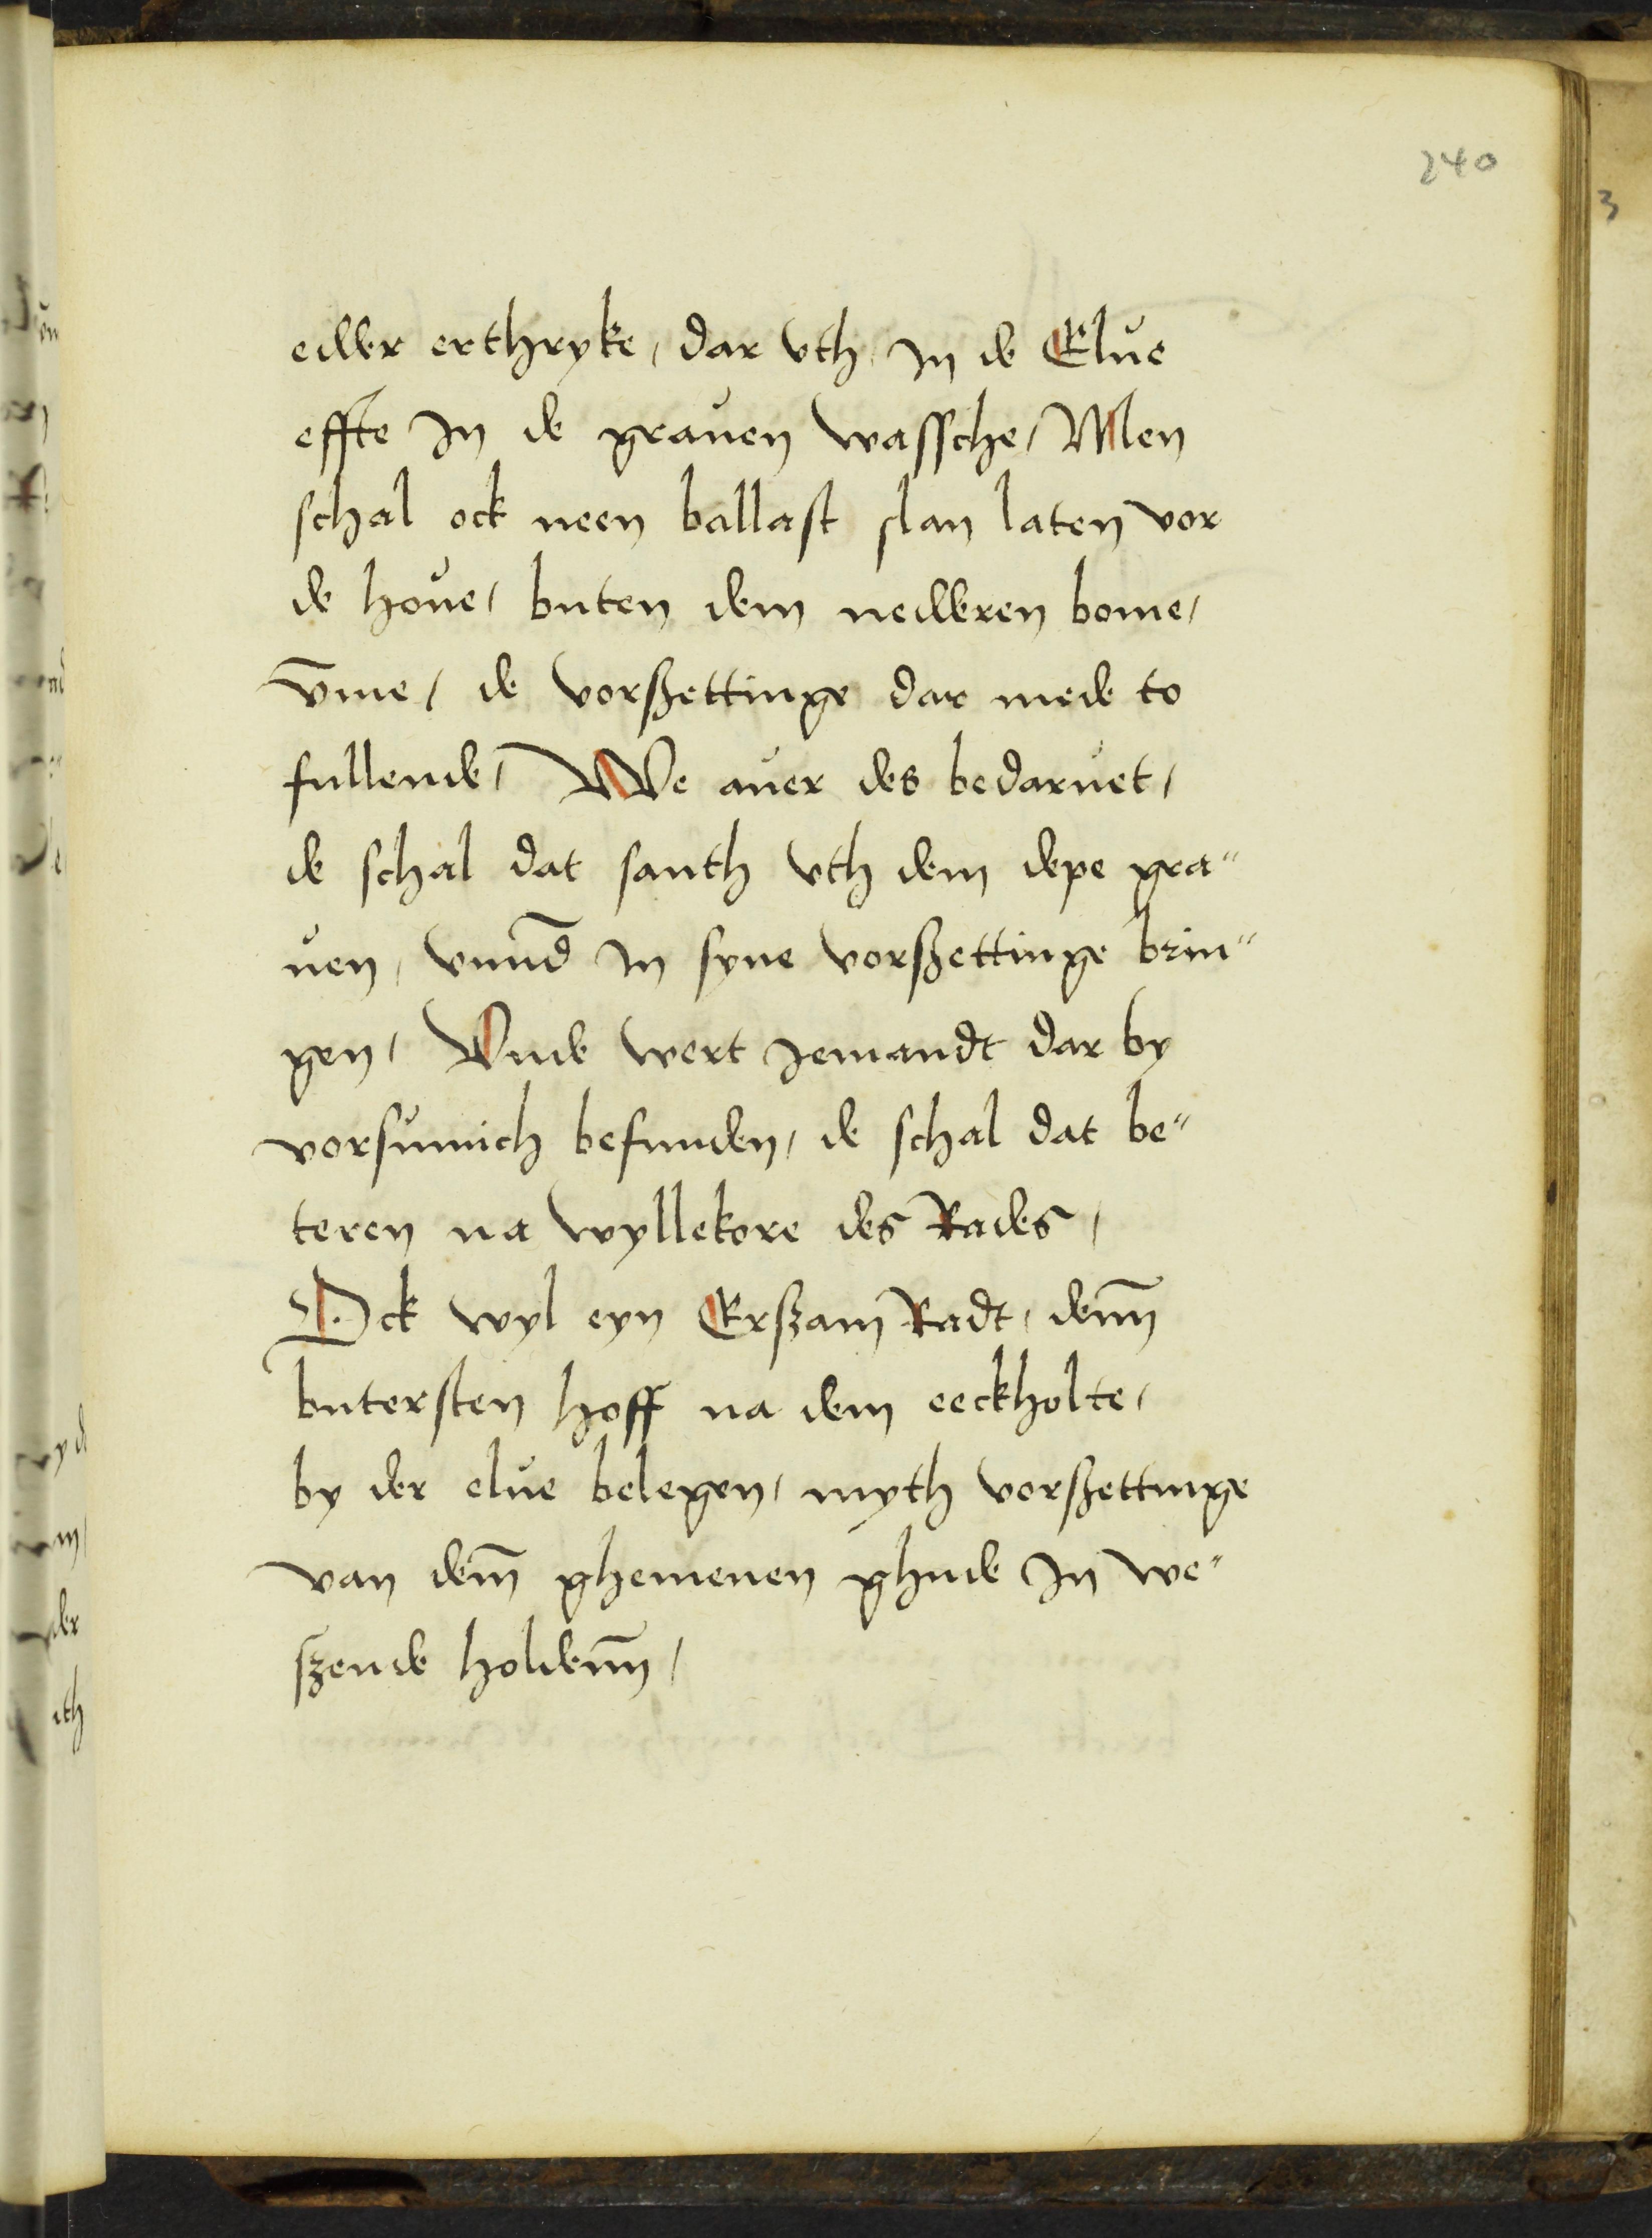 240
3
edder erthryke / dar vth / in de Elue
effte in de grauen wassche / Men
schal ock neen ballast slan laten vor
de houe / buten dem nedderen bome /
v̄me / de vorszettinge dar mede to
fullende / We auer des bedaruet /
de schal dat santh vth dem depe gra"
uen / vnnd̄ in syne vorszettinge brin"
gen / Vnde wert jemandt dar by
vorsumich befunden / de schal dat be"
teren na wyllekore des Rades /
Ock wyl eyn Erszam Radt / dem̄
butersten hoff na dem eeckholte /
by der elue belegen / myth vorszettinge
van dem̄ ghemenen ghude in we"
szende holden̄ /